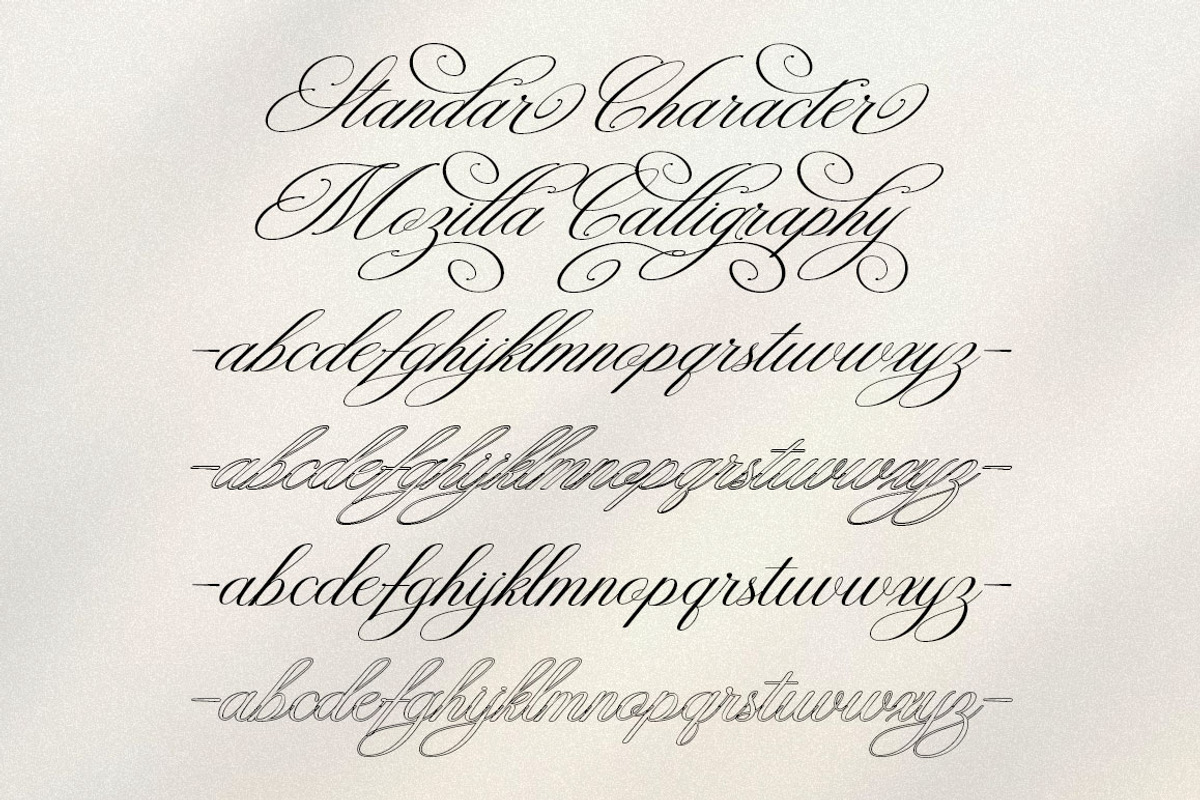 Standar Character
Mozilla Calligraphy
-abcdefghijklmnopqrstuvwxyz-
-abcdefghijklmnopqrstuvwxyz-
-abcdefghijklmnopqrstuvwxyz-
-abcdefghijklmnopqrstuvwxyz-